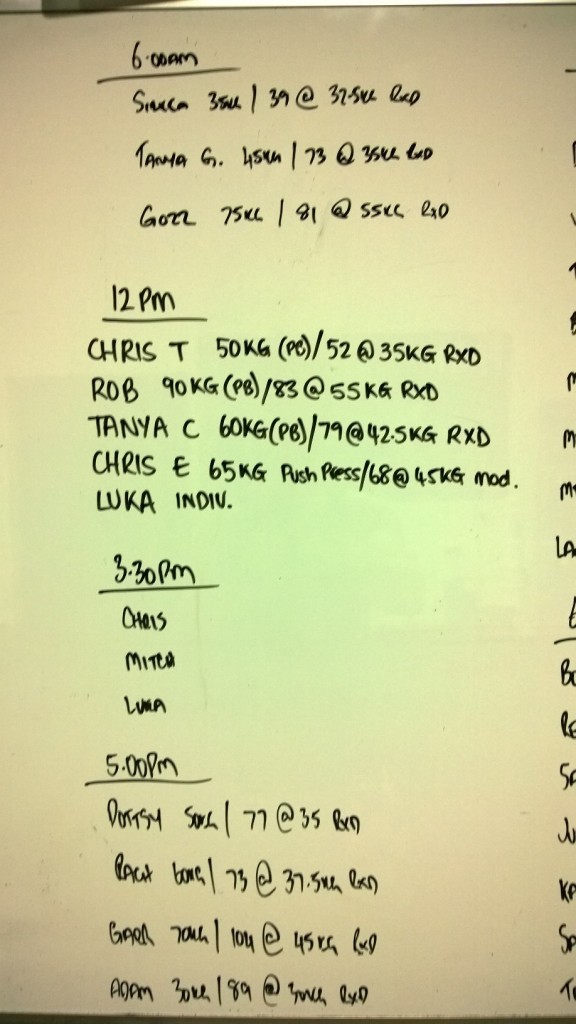 6.00AM
35KG | 39 @ 37.5KG RXD
TANYA G. 45KG | 73 @ 35KG RXD
GOZZ 75KG | 81 @ 55KG RXD
12PM
CHRIS T 50KG (PB)/52@35KG RXD
ROB 90KG (PB)/83@55KG RXD
TANYA C 60KG(PB)/79@42.5KG RXD
CHRIS E 65KG Push Press/68@45KG mod.
LUKA INDIV.
3.30PM
CHRIS
MITCH
LUKA
5.00PM
50KG | 77 @ 35 RXD
60KG | 73 @ 37.5KG RXD
70KG | 104 @ 45KG RXD
ADAM 30KG | 89 @ 30KG RXD
LA